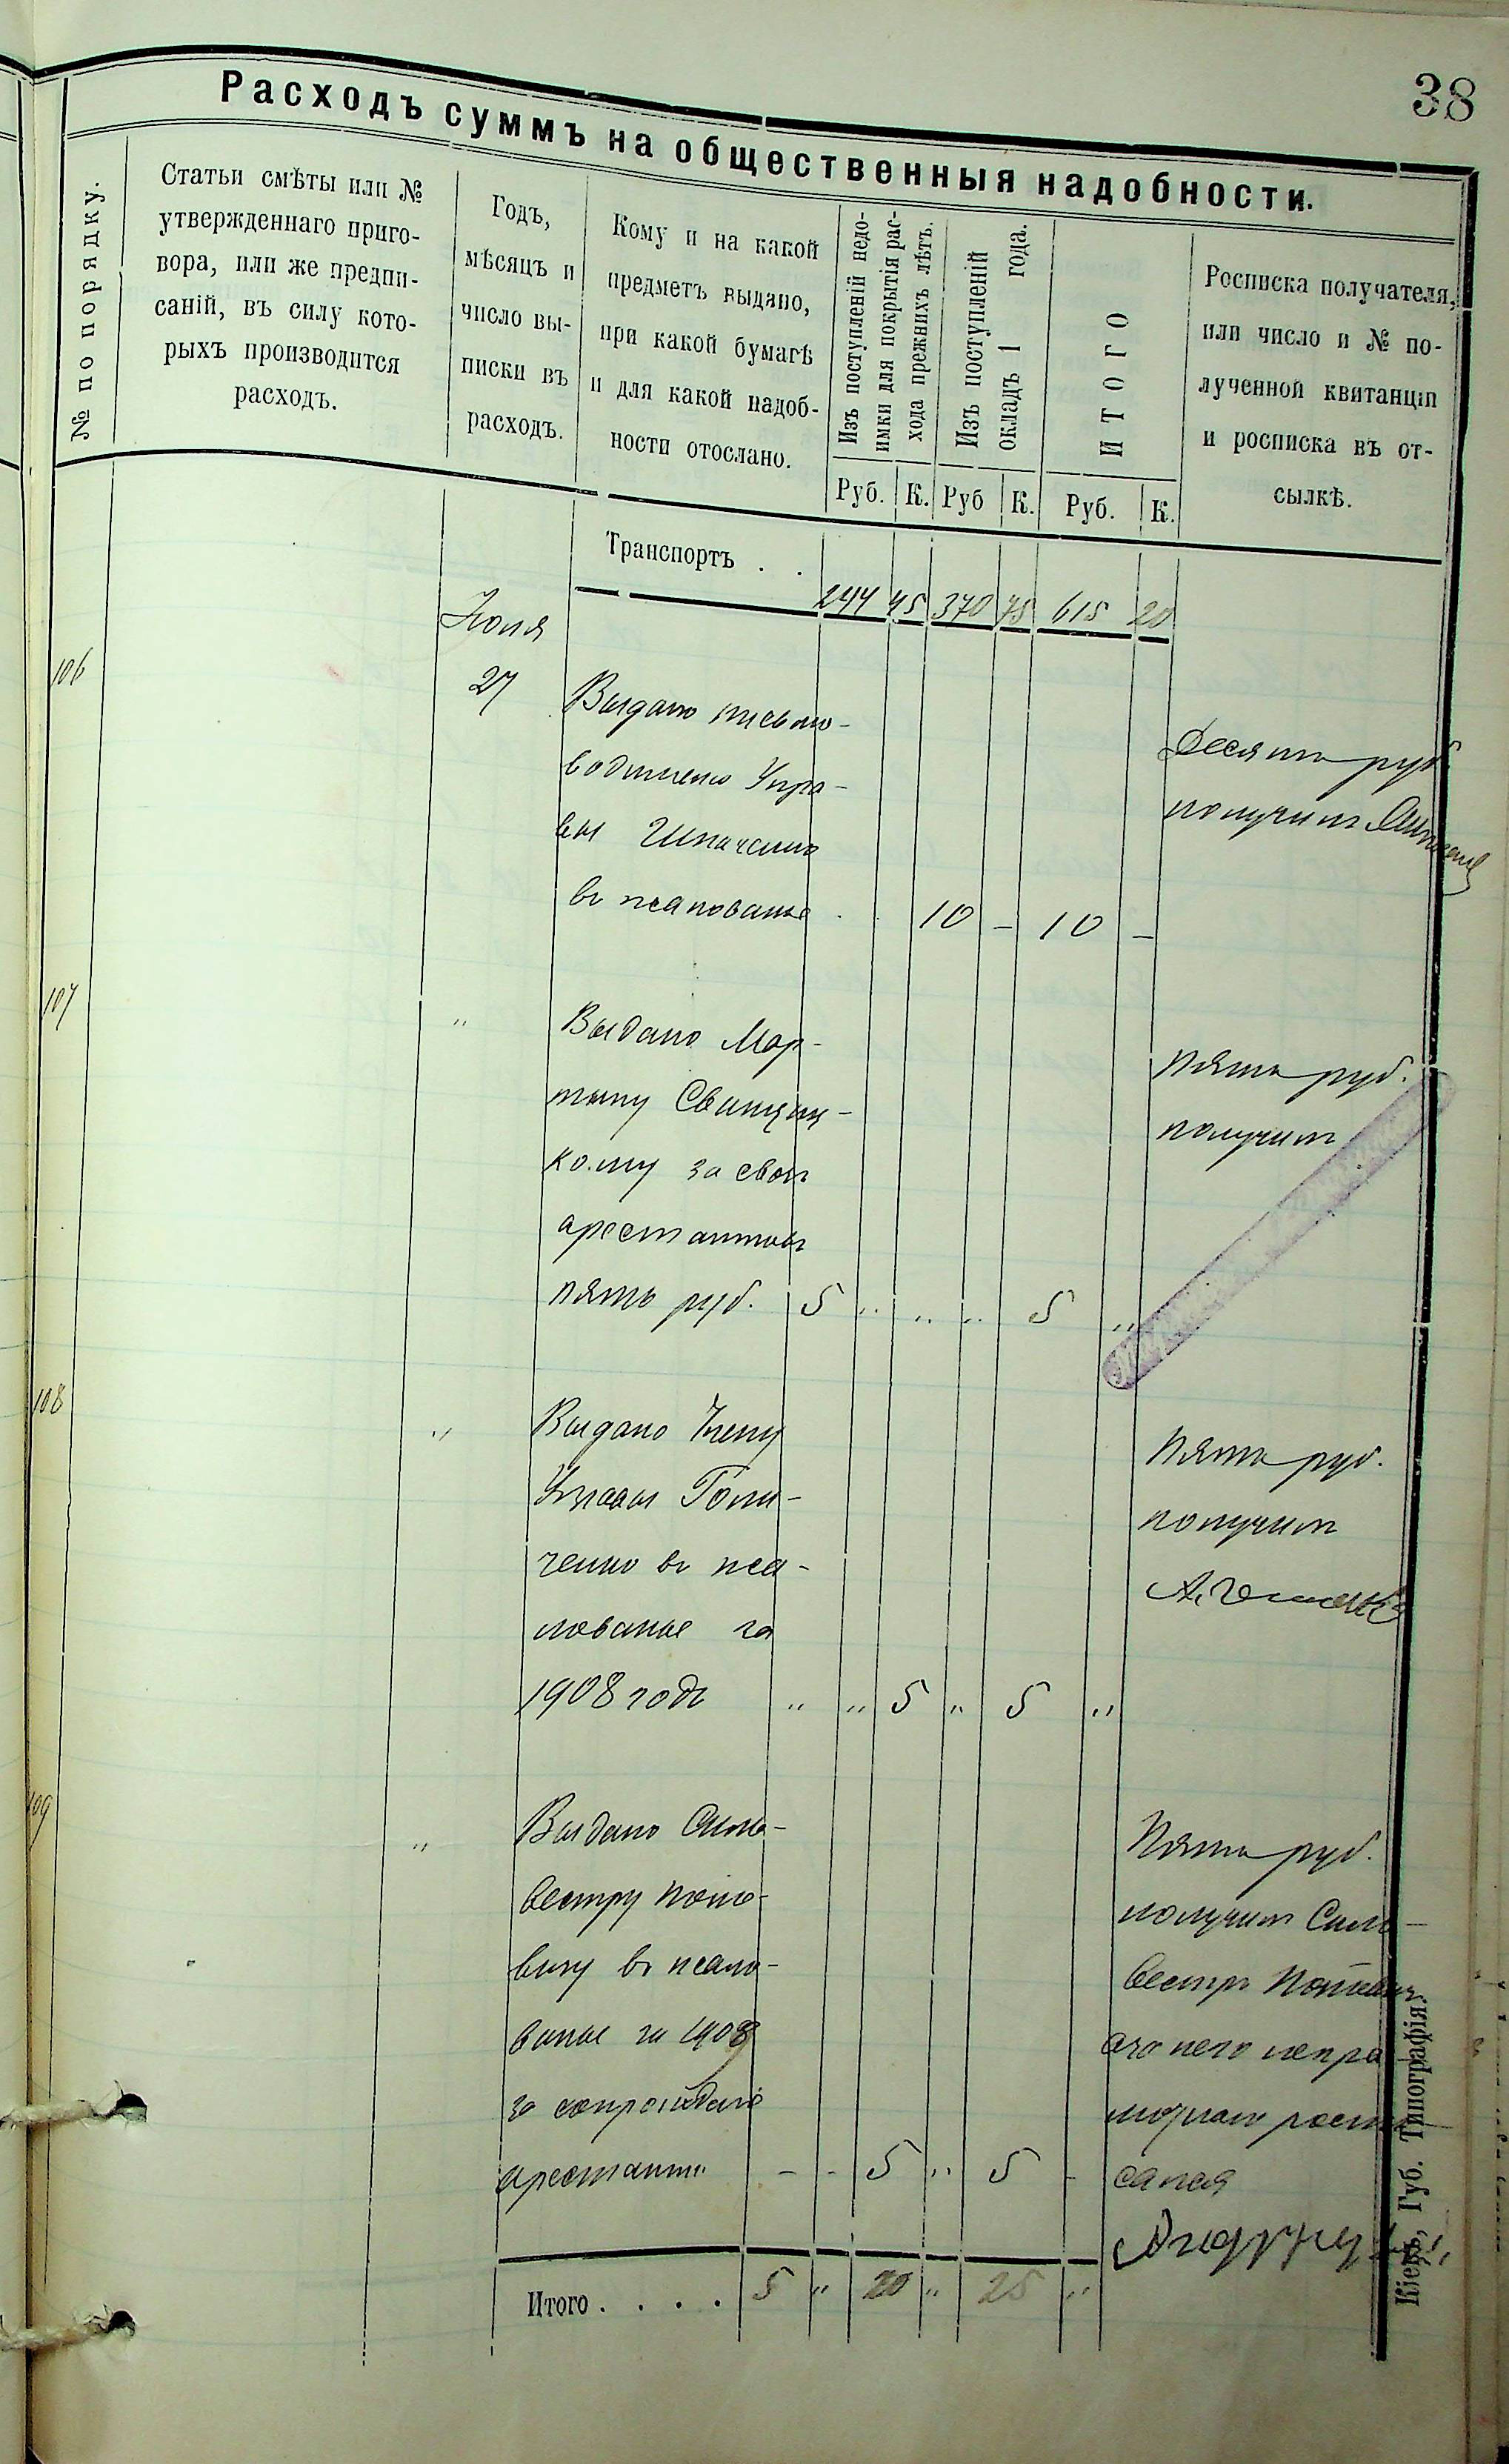 38
Расходъ суммъ на общественныя надобности.
№ по порядку.
Статьи смѣты или №
утвержденнаго приго-
вора, или же предпи-
саній, въ силу кото-
рыхъ производится
расходъ.
Годъ,
мѣсяцъ и
число вы-
писки въ
расходъ.
Кому и на какой
предметъ выдано,
при какой бумагѣ
и для какой надоб-
ности отослано.
Изъ поступленій недо-
имки для покрытія рас-
хода прежнихъ лѣтъ.
Изъ поступленій
окладъ 1 года.
ИТОГО
Росписка получателя,
или число и № по-
лученной квитанціи
и росписка въ от-
сылкѣ.
Руб. К. Руб К. Руб. К.
Транспортъ . . 244 45 370 75 615 20
106
27
Выдано письмо-
водителю Упра-
вы
въ жалованье 10 – 10 –
Десять руб
получилъ
107 "
Выдано Мар-
тыну
кому за своз
арестантовъ
пять руб. 5 " " " 5 "
Пять руб.
получилъ
108 "
Выдано Члену
Управы Гони-
ченко въ жа-
лованье за
1908 годъ " " 5 " 5 "
Пять руб.
получилъ
109 "
Выдано Силь-
вестру
въ жало-
ванье за 1908
за
арестанта - - 5 " 5 -
Пять руб.
получилъ Силь-
вестръ
а за него негра-
мотнаго роспи-
сался
Итого . . . . 5 " 20 " 25 "
Кіевъ, Губ. Типографія.